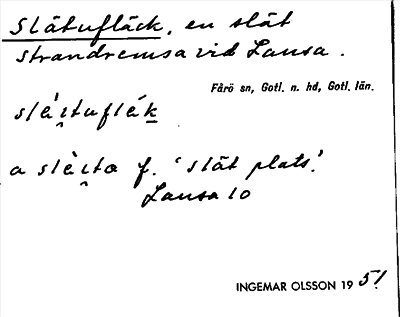 Slätufläck, en slät
strandremsa vid Lansa.
Fårö sn, Gotl. n. hd, Gotl. län.
slè̀i̯tuflék
a slèi̯ta f. 'slät plats'.
Lansa 10
INGEMAR OLSSON 1951